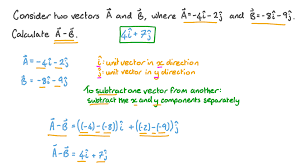 Consider two vectors A⃗ and B⃗, where A⃗=-4î-2ĵ and B⃗=-8î-9ĵ.
Calculate A⃗-B⃗.
4î+7ĵ
A⃗=-4î-2ĵ
B⃗=-8î-9ĵ
î: unit vector in x direction
ĵ: unit vector in y direction
To subtract one vector from another:
subtract the x and y components separately
A⃗-B⃗=((-4)-(-8))î+((-2)-(-9))ĵ
A⃗-B⃗=4î+7ĵ